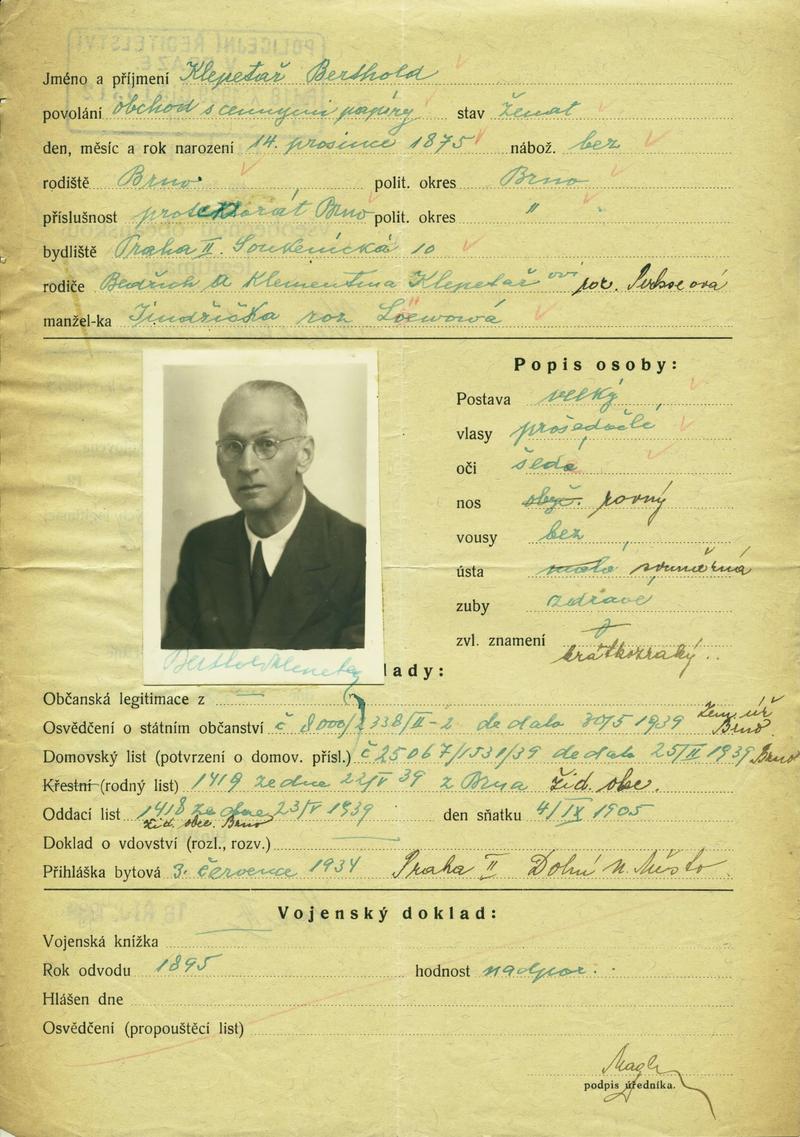 Jméno a příjmení Klepetař Berthold
povolání obchod s cennymi papíry stav ženat
den, měsíc a rok narození 14. prosince 1875 nábož. bez
rodiště Brno polit. okres Brno
příslušnost protektorát Brno polit. okres "
bydliště Praha II. Soukenická 10
rodiče Bedřich a Klementina Klepetař ovi roz.
manžel-ka Jindřiška roz Löwová
Popis osoby:
Postava velký
vlasy prošedočlé
oči šedé
nos obyč. rovný
vousy bez
ústa malá souměrná
zuby zdravé
zvl. znamení
krátkozraký..
Berthold Klepetař
lady:
Občanská legitimace z —
Osvědčení o státním občanství č 8000/2338/II-2 de dato 30/5 1939 Zem. úř. Brno
Domovský list (potvrzení o domov. přísl.) č 25067/1531/39 de dato 25/II 1939 Brno
Křestní (rodný list) 1419 ze dne 22/V 39 z Brna žid. obec.
Oddací list 1418 ze dne 23/V 1939 den sňatku 4/IX 1905
žid. obec. Brno
Doklad o vdovství (rozl., rozv.) —
Přihláška bytová 3. července 1934 Praha II Dolní n. Město
Vojenský doklad:
Vojenská knížka —
Rok odvodu 1895 hodnost nadpor.
Hlášen dne
Osvědčení (propouštěcí list)
podpis úředníka.